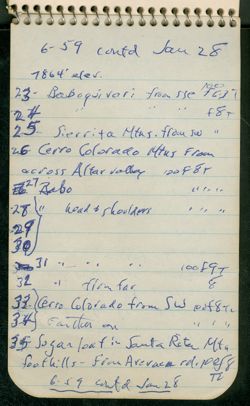 6-59 contd Jan 28
7864' elev.
23- Baboquivari from sse
24 " " " f8T
25 Sierrita Mtns. from sw "
26 Cerro Colorado Mtns From
across Altar valley 100f8T
27 Babo " " "
28 " head & shoulders " " "
29
30
31 " " " " 100f9T
32 " firm far 8
33 Cerro Colorado from SW 100f8T2
34 " Farther on " " "
35 Sugarloaf in Santa Rita Mtn
foothills - from Arevaca rd.
6-59 contd Jan 28